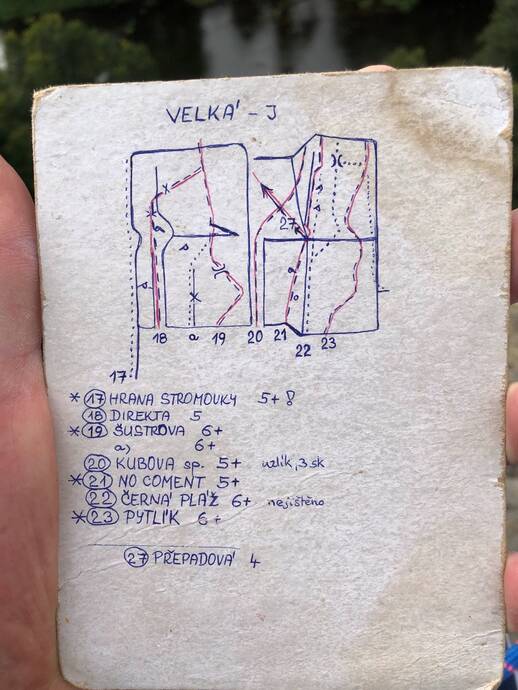 VELKÁ - J
27
18 a 19 20 21 22 23
17
* 17 HRANA STROMOVKY 5+ !
18 DIREKTA 5
* 19 ŠUSTROVA 6+
a) 6+
20 KUBOVA sp. 5+ uzlík, 3 sk
* 21 NO COMENT 5+
22 ČERNÁ PLÁŽ 6+ nejištěno
* 23 PYTLÍK 6+
27 PŘEPADOVÁ 4